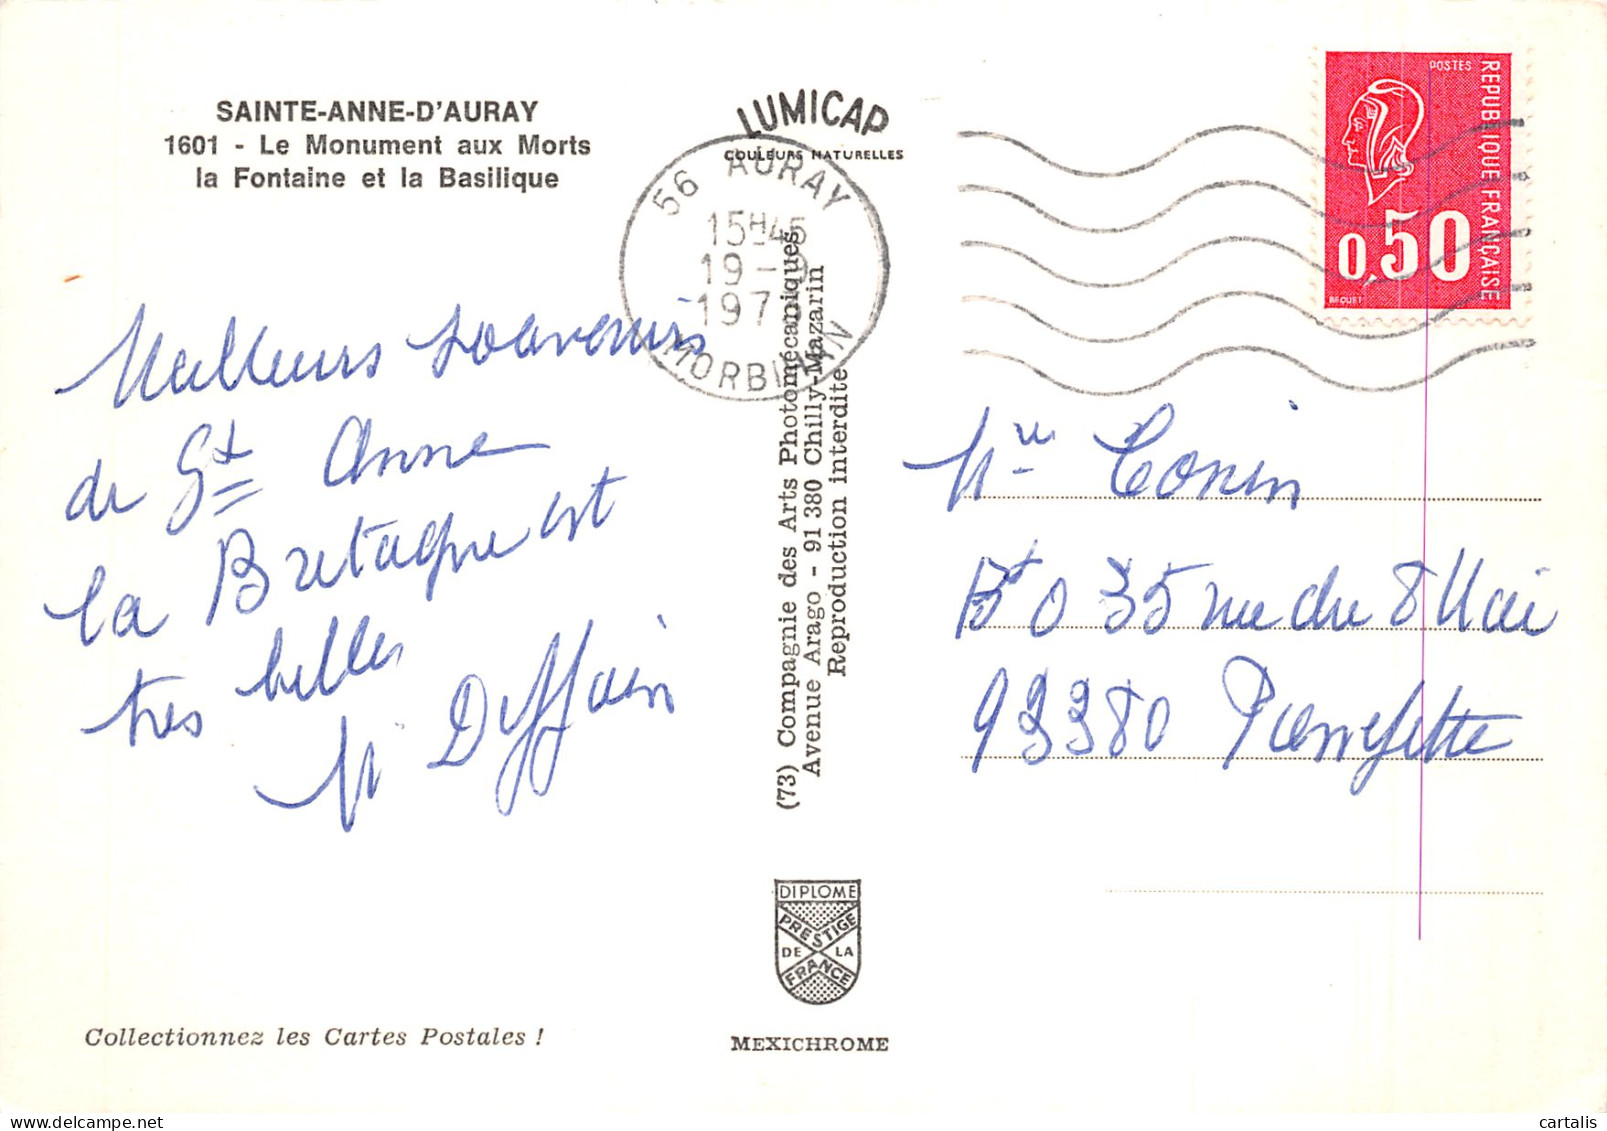 SAINTE-ANNE-D'AURAY
1601 - Le Monument aux Morts
la Fontaine et la Basilique
LUMICAP
COULEURS NATURELLES
56 AURAY
15H45
19 -
197
MORBIHAN
POSTES
REPUBLIQUE FRANÇAISE
0,50
BEQUET
Meilleurs souvenirs
de Ste Anne
la Bretagne est
très belle
M Deffain
(73) Compagnie des Arts Photomécaniques
Avenue Arago - 91 380 Chilly-Mazarin
Reproduction interdite
Mre Conin
Bt O 35 rue du 8 Mai
93380 Pierrefitte
DIPLOME
PRESTIGE
DE LA
FRANCE
Collectionnez les Cartes Postales !
MEXICHROME
cartalis